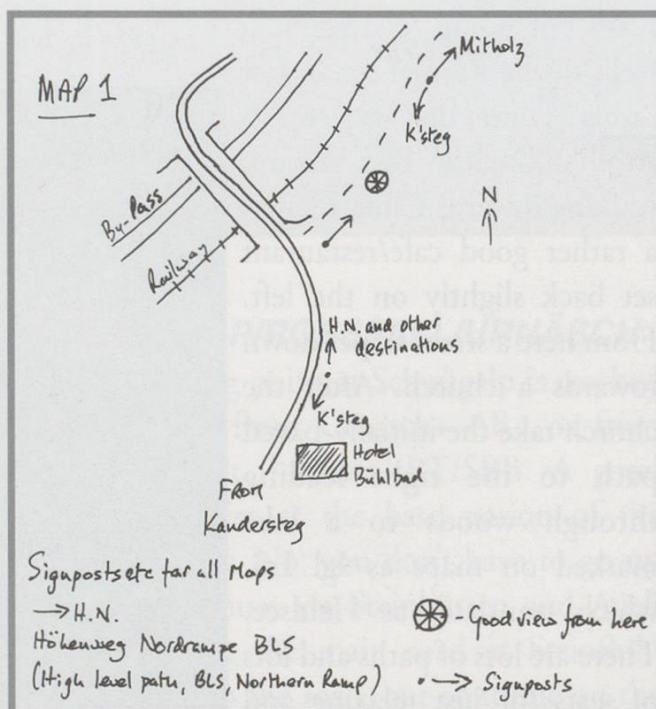 MAP 1
Mitholz
K'steg
N
By-Pass
Railway
H.N. and other
destinations
K'steg
Hotel
Bühlbad
From
Kandersteg
Signposts etc for all Maps
→ H.N.
Höhenweg Nordrampe BLS
(High level path, BLS, Northern Ramp)
- Good view from here
Signposts